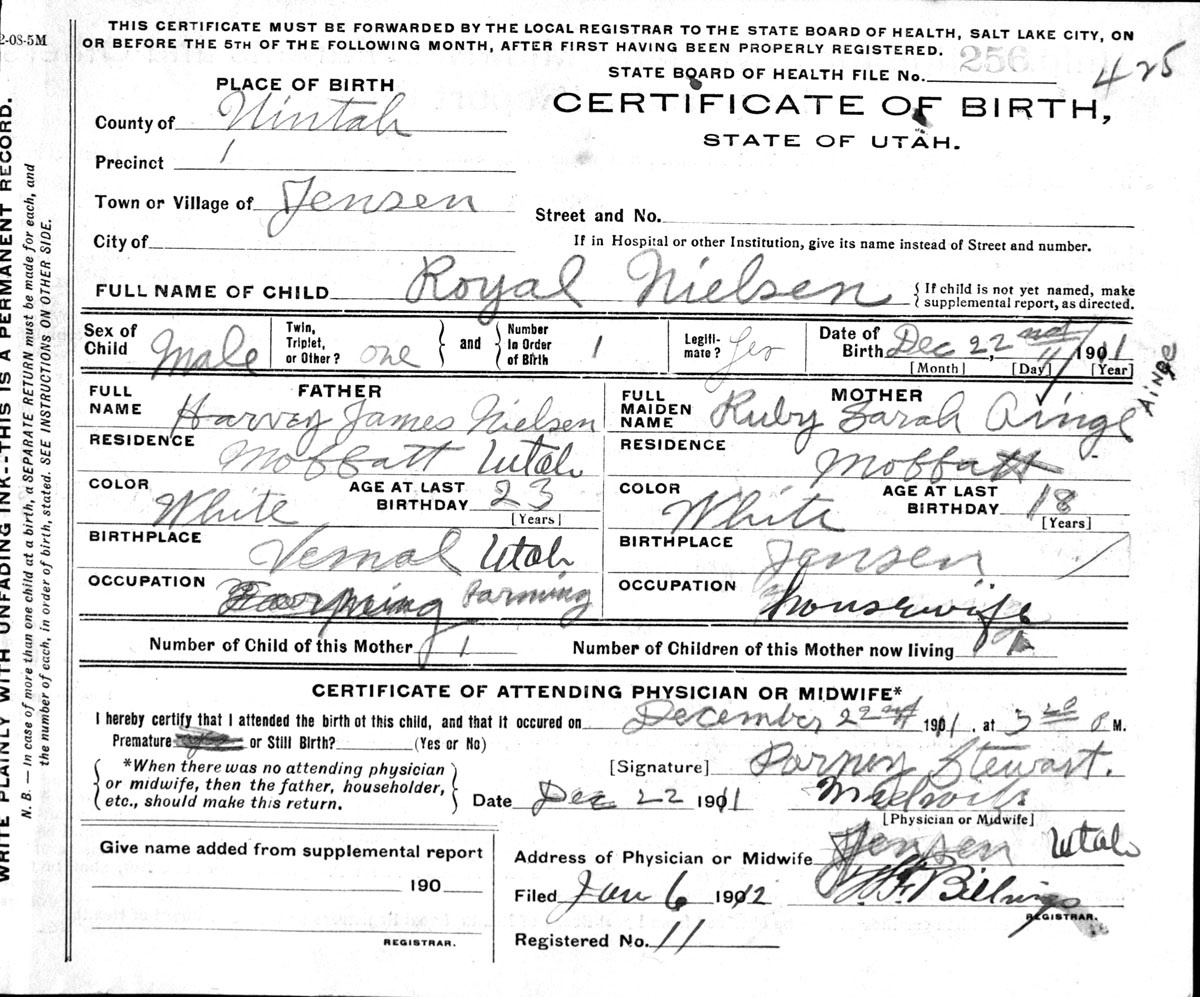 2-08-5M
THIS CERTIFICATE MUST BE FORWARDED BY THE LOCAL REGISTRAR TO THE STATE BOARD OF HEALTH, SALT LAKE CITY, ON
OR BEFORE THE 5TH OF THE FOLLOWING MONTH, AFTER FIRST HAVING BEEN PROPERLY REGISTERED.
256
STATE BOARD OF HEALTH FILE No. 425
PLACE OF BIRTH
CERTIFICATE OF BIRTH,
County of Uintah
STATE OF UTAH.
Precinct 1
Town or Village of Jensen
Street and No.
City of
If in Hospital or other Institution, give its name instead of Street and number.
FULL NAME OF CHILD Royal Nielsen
{If child is not yet named, make
supplemental report, as directed.
Sex of Child Male
Twin, Triplet, or Other? one
and
Number In Order of Birth 1
Legiti-mate? Yes
Date of Birth Dec 22nd, 11 1901
[Month] [Day] [Year]
FATHER
FULL NAME Harvey James Nielsen
RESIDENCE Moffatt Utah
COLOR White
AGE AT LAST BIRTHDAY 23
[Years]
BIRTHPLACE Vernal Utah
OCCUPATION Farming Farming
MOTHER
FULL MAIDEN NAME Ruby Sarah Ainge
Ainge
RESIDENCE Moffatt
COLOR White
AGE AT LAST BIRTHDAY 18
[Years]
BIRTHPLACE Jensen
OCCUPATION housewife
Number of Child of this Mother 1
Number of Children of this Mother now living 1
CERTIFICATE OF ATTENDING PHYSICIAN OR MIDWIFE*
I hereby certify that I attended the birth of this child, and that it occured on December 22nd 1911, at 3 20 P M.
Premature or Still Birth? (Yes or No)
*When there was no attending physician
or midwife, then the father, householder,
etc., should make this return.
[Signature] Stewart.
Date Dec 22 1911
Midwife
[Physician or Midwife]
Give name added from supplemental report
190
REGISTRAR.
Address of Physician or Midwife Jensen Utah
Filed Jan 6 1912
Billings
REGISTRAR.
Registered No. 11
WRITE PLAINLY WITH UNFADING INK--THIS IS A PERMANENT RECORD.
N. B. — In case of more than one child at a birth, a SEPARATE RETURN must be made for each, and
the number of each, in order of birth, stated. SEE INSTRUCTIONS ON OTHER SIDE.